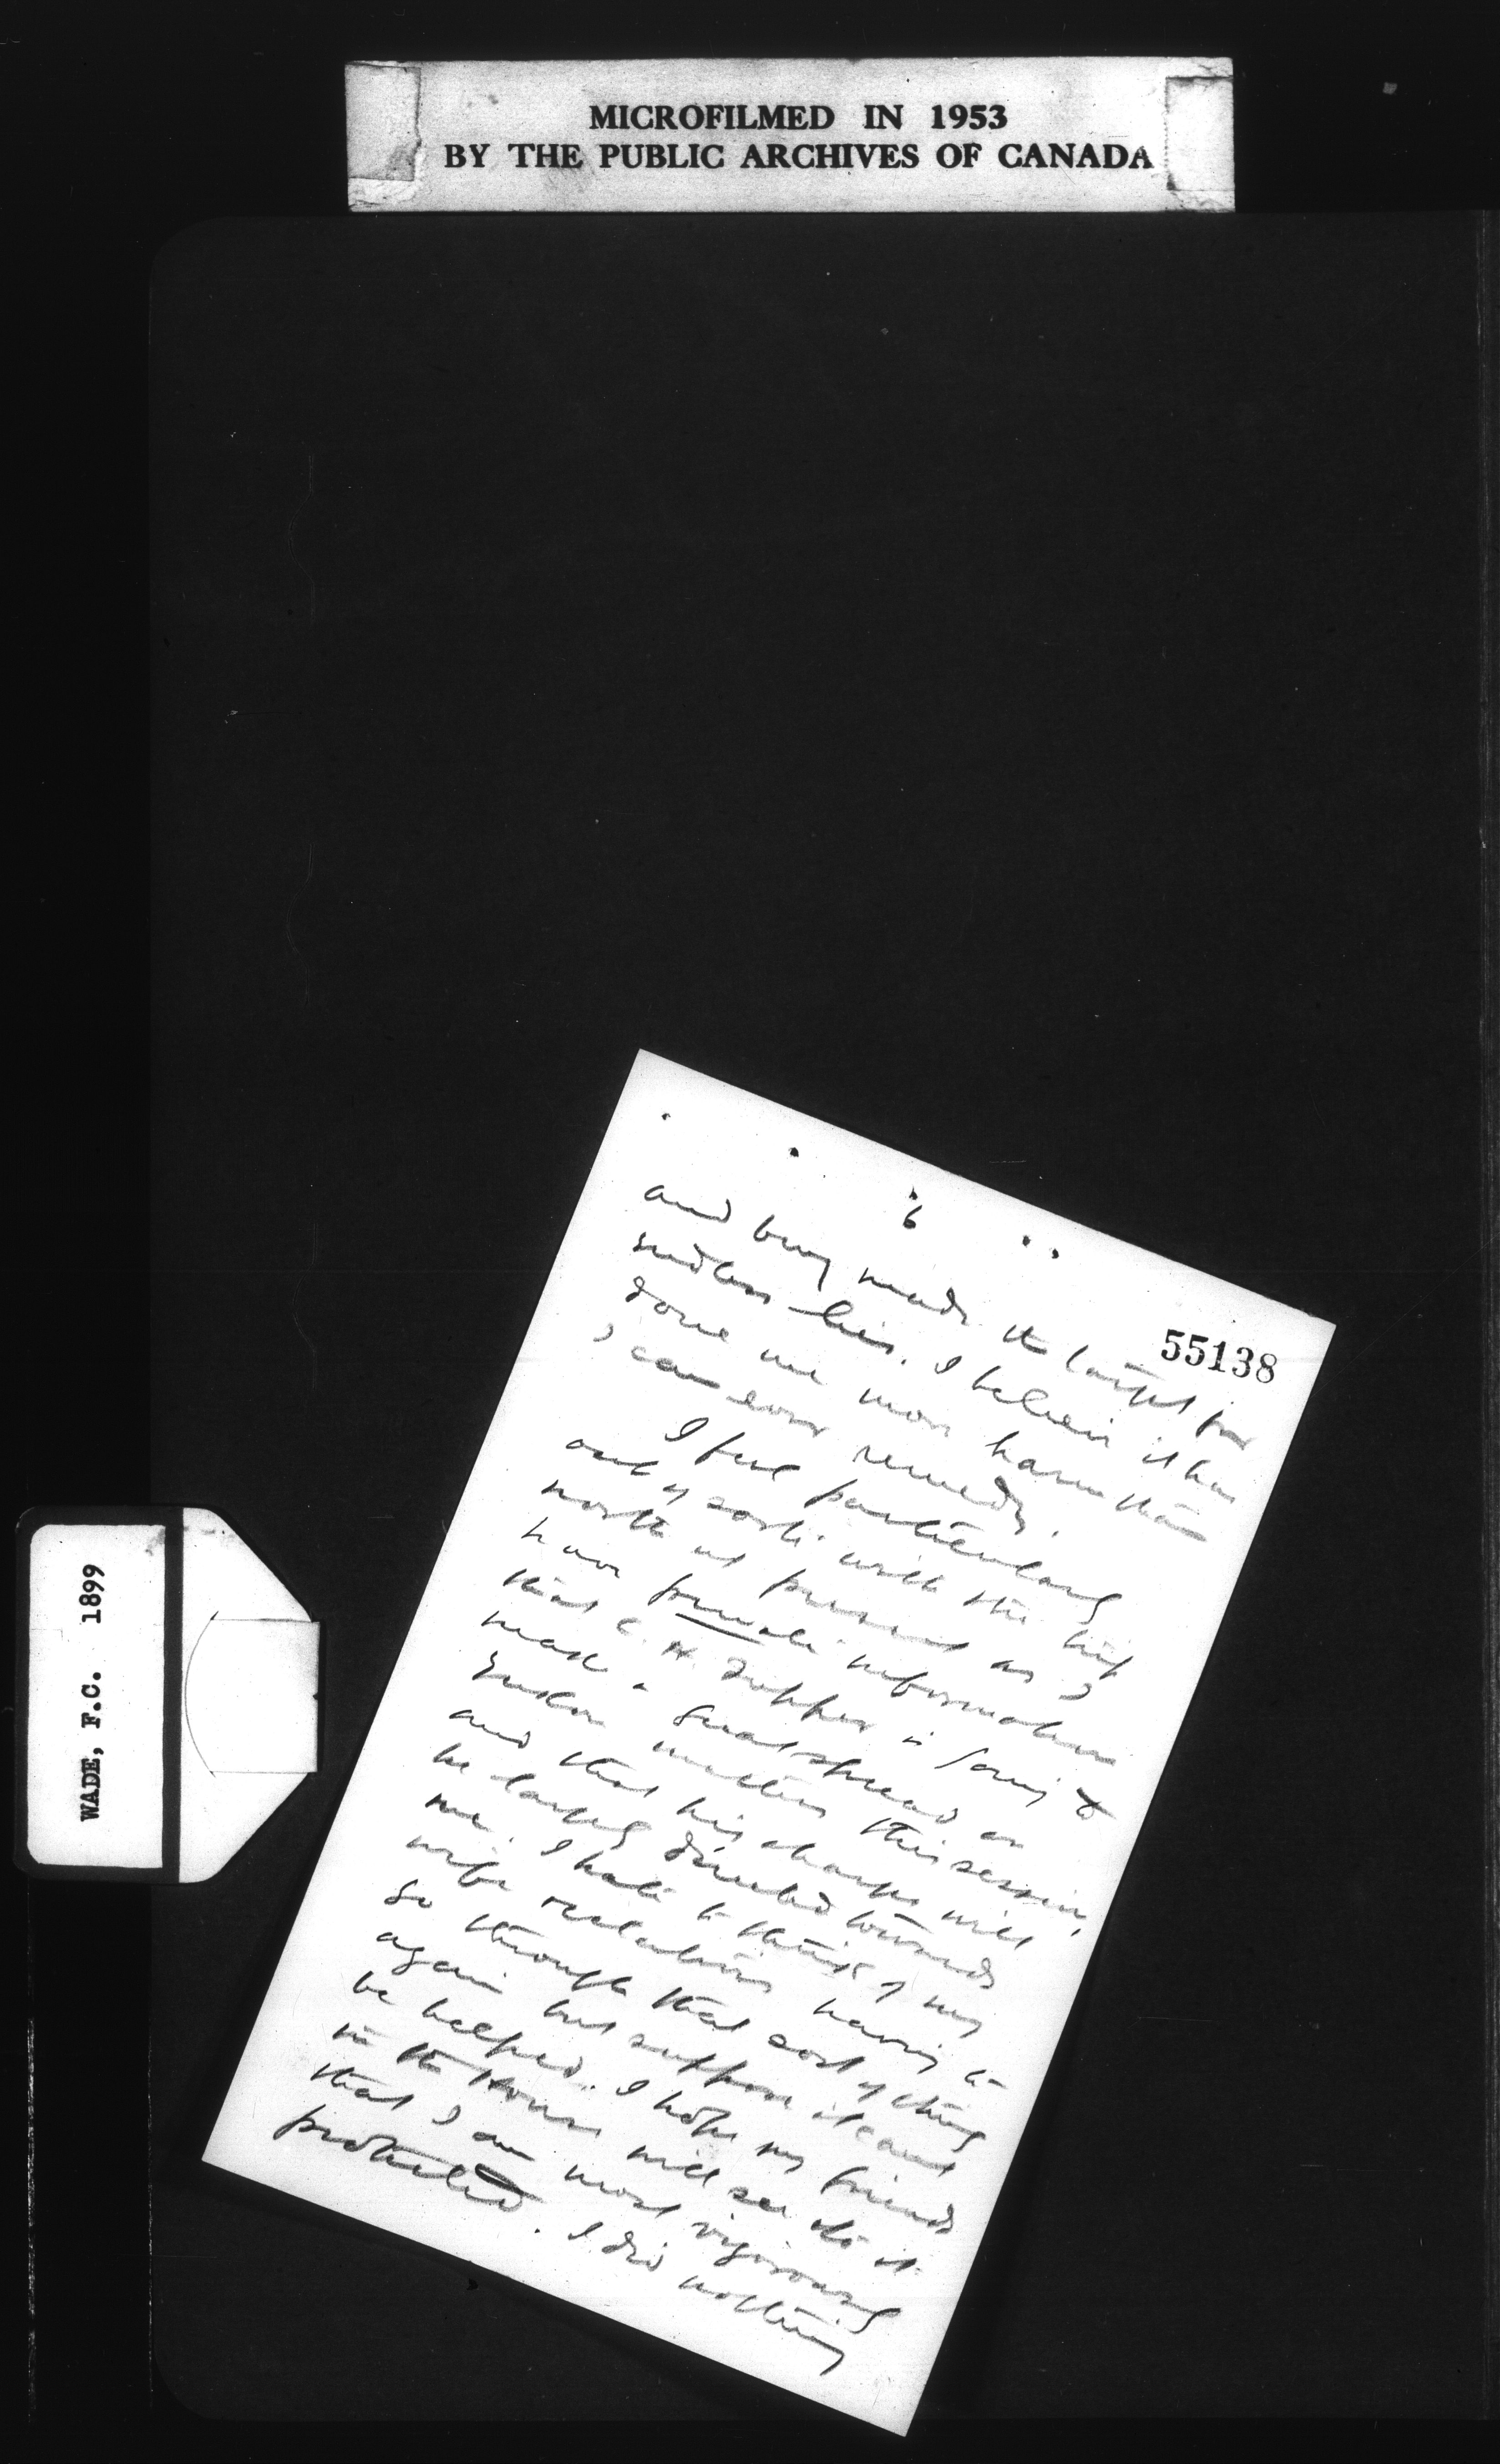 MICROFILMED IN 1953
BY THE PUBLIC ARCHIVES OF CANADA
WADE, F.C. 1899
6
55138
and being made the target for
endless lies. I believe it has
done me more harm than
I can ever remedy.
I feel particularly
out of sorts with the trip
north at present as I
have private information
that C. H. Tupper is going to
make a great spread on
Yukon matters this session,
and that his charges will
be largely directed towards
me. I hate to think of my
wife's relations having to
go through that sort of thing
again but suppose it can't
be helped. I hope my friends
in the House will see to it
that I am most vigorously
protected. I did nothing